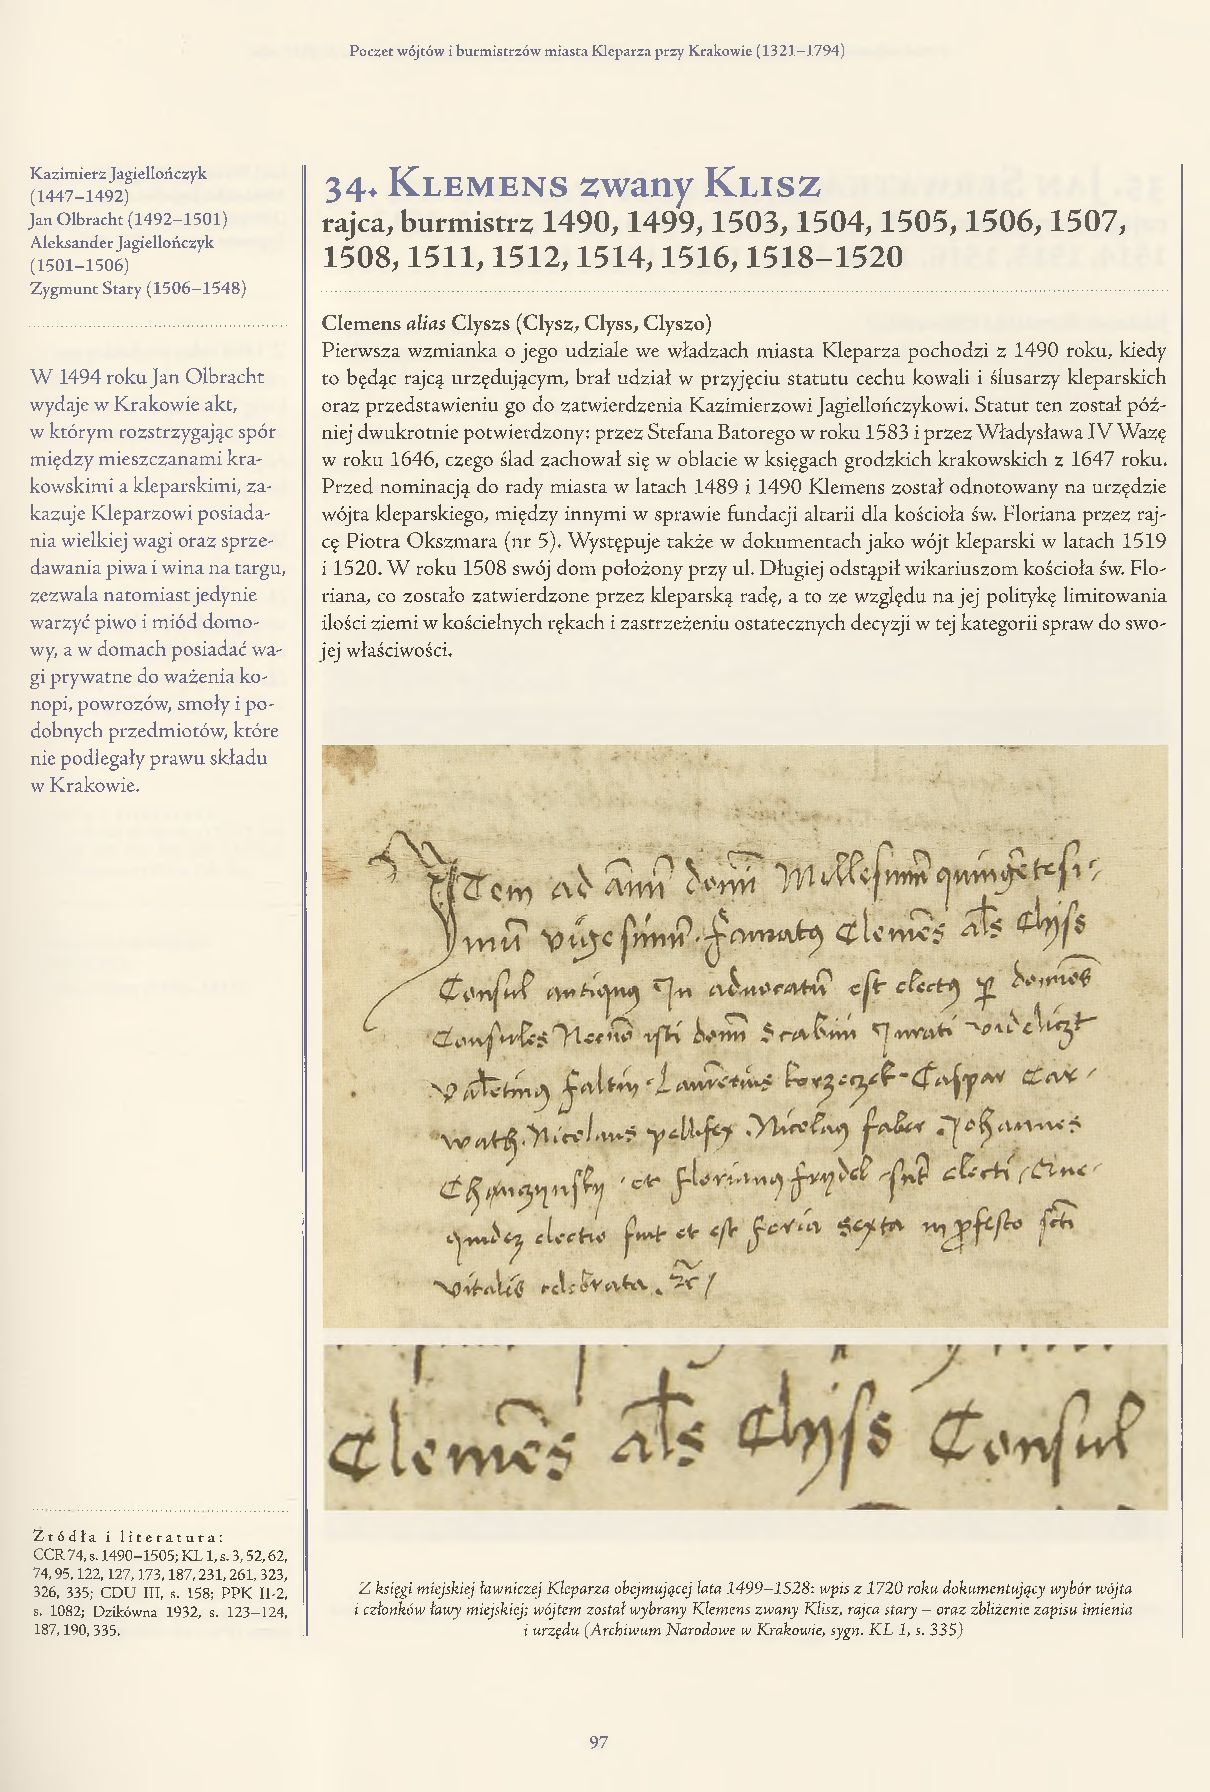 Poczet wójtów i burmistrzów miasta Kleparza przy Krakowie (1321–1794)
Kazimierz Jagiellończyk
(1447–1492)
Jan Olbracht (1492–1501)
Aleksander Jagiellończyk
(1501–1506)
Zygmunt Stary (1506–1548)
W 1494 roku Jan Olbracht
wydaje w Krakowie akt,
w którym rozstrzygając spór
między mieszczanami kra-
kowskimi a kleparskimi, za-
kazuje Kleparzowi posiada-
nia wielkiej wagi oraz sprze-
dawania piwa i wina na targu,
zezwala natomiast jedynie
warzyć piwo i miód domo-
wy, a w domach posiadać wa-
gi prywatne do ważenia ko-
nopi, powrozów, smoły i po-
dobnych przedmiotów, które
nie podlegały prawu składu
w Krakowie.
Źródła i literatura:
CCR 74, s. 1490–1505; KL 1, s. 3, 52, 62,
74, 95, 122, 127, 173, 187, 231, 261, 323,
326, 335; CDU III, s. 158; PPK II-2,
s. 1082; Dzikówna 1932, s. 123–124,
187, 190, 335.
34. Klemens zwany Klisz
rajca, burmistrz 1490, 1499, 1503, 1504, 1505, 1506, 1507,
1508, 1511, 1512, 1514, 1516, 1518–1520
Clemens alias Clyszs (Clysz, Clyss, Clyszo)
Pierwsza wzmianka o jego udziale we władzach miasta Kleparza pochodzi z 1490 roku, kiedy
to będąc rajcą urzędującym, brał udział w przyjęciu statutu cechu kowali i ślusarzy kleparskich
oraz przedstawieniu go do zatwierdzenia Kazimierzowi Jagiellończykowi. Statut ten został póź-
niej dwukrotnie potwierdzony: przez Stefana Batorego w roku 1583 i przez Władysława IV Wazę
w roku 1646, czego ślad zachował się w oblacie w księgach grodzkich krakowskich z 1647 roku.
Przed nominacją do rady miasta w latach 1489 i 1490 Klemens został odnotowany na urzędzie
wójta kleparskiego, między innymi w sprawie fundacji altarii dla kościoła św. Floriana przez raj-
cę Piotra Okszmara (nr 5). Występuje także w dokumentach jako wójt kleparski w latach 1519
i 1520. W roku 1508 swój dom położony przy ul. Długiej odstąpił wikariuszom kościoła św. Flo-
riana, co zostało zatwierdzone przez kleparską radę, a to ze względu na jej politykę limitowania
ilości ziemi w kościelnych rękach i zastrzeżeniu ostatecznych decyzji w tej kategorii spraw do swo-
jej właściwości.
Item ad annū domī Millesimū quingētesi-
mū vigesimū. Famatus Clemēs als Clyss
Consul antiquus In advocatū est electus per domīos
Consules Necnō isti domī Scabini Jurati videlicet
Valētinus Faltin Laurētius korzeczek Caspar Car-
wath. Nicolaus pellifex. Nicolaus faber. Johannes
et Florianus Frydel sunt electi Que
quidez electio fuit et est Feria Sexta in profesto scti
Vitalis celebrata.
Clemēs als Clyss Consul
Z księgi miejskiej ławniczej Kleparza obejmującej lata 1499–1528: wpis z 1720 roku dokumentujący wybór wójta
i członków ławy miejskiej; wójtem został wybrany Klemens zwany Klisz, rajca stary – oraz zbliżenie zapisu imienia
i urzędu (Archiwum Narodowe w Krakowie, sygn. KL 1, s. 335)
97